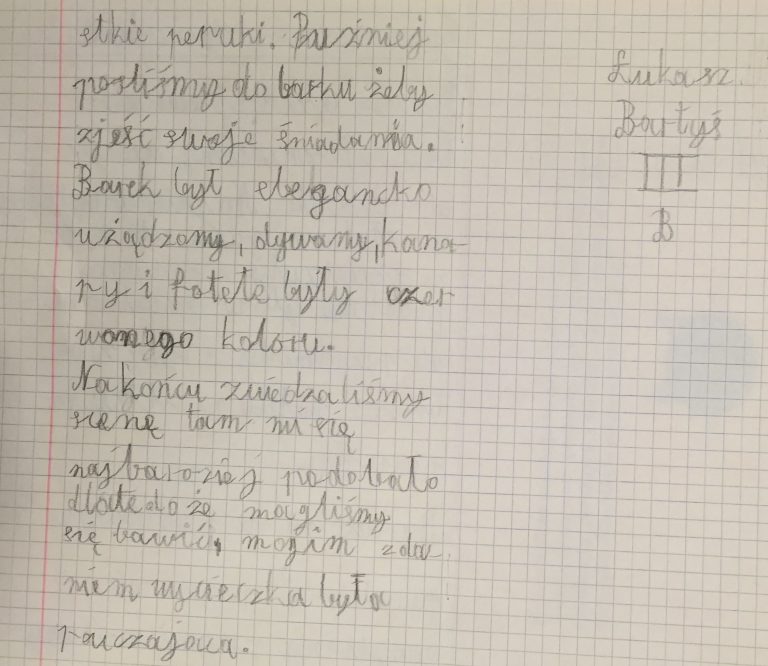 stkie peruki. Puźniej
poszliśmy do barku żeby
zjeść swoje śniadania.
Barek był elegancko
użądzony, dywany, kana-
py i fotele były czer
wonego koloru.
Na końcu zwiedzaliśmy
scenę tam mi się
najbardziej podobało
dlatedo że mogliśmy
się bawić, mojim zda
niem wycieczka była
pouczająca.
Łukasz
Bartyś
III
B